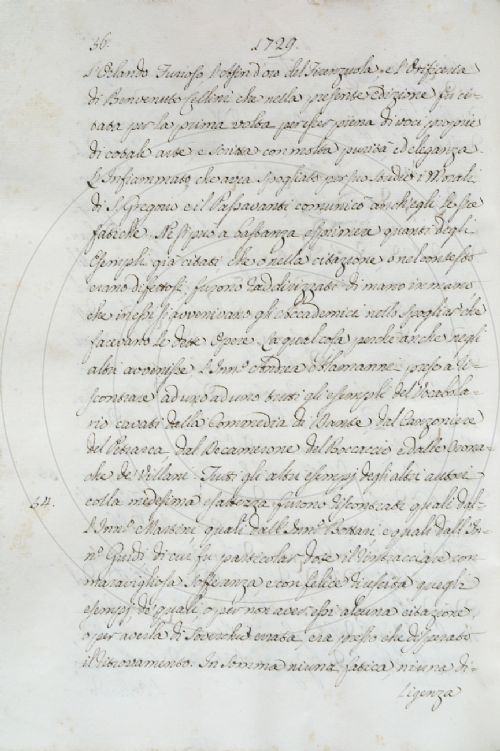 36. 1729.
l'Orlando Furioso l'Asin d'oro del Firenzuola, e l'Orificeria
di Benvenuto Cellini che nella presente edizione fu ci-
tata per la prima volta per esser piena di voci proprie
di cotale arte e scritta con molta purità ed eleganza.
L'Infiammato, che avea spogliato per suo studio i Morali
di S. Gregorio e il Passavanti comunicò anch'egli le sue
fatiche. Nè si può a bastanza esprimere quanti degli
esempli già citati, che o nella citazione o nel contesto
erano difettosi, furono raddirizzati di mano in mano
che in essi si avvenivano gli Accademici nello spogliar che
facevano le dette Opere. La qual cosa perchè anche negli
altri avvenisse l'Inno. Andrea Alamanni prese a ri-
scontrare ad uno ad uno tutti gli esempli del Vocabola-
rio cavati dalla Commedia di Dante, dal Canzoniere
del Petrarca, dal Decamerone del Boccaccio e dalle Crona-
che de' Villani. Tutti gli altri esempj degli altri autori
54. colla medesima esattezza furono riscontrati quali dal-
l'Inno. Martini, quali dall'Inno. Bottari, e quali dall'In-
no. Guidi di cui fu particolar dote il rintracciare con
maravigliosa sofferenza, e con felice riuscita quegli
esempj de' quali, o per non aver essi alcuna citazione
o per averla di soverchio errata, era presso che disperato
il ritrovamento. In somma niuna fatica, niuna di-
ligenza